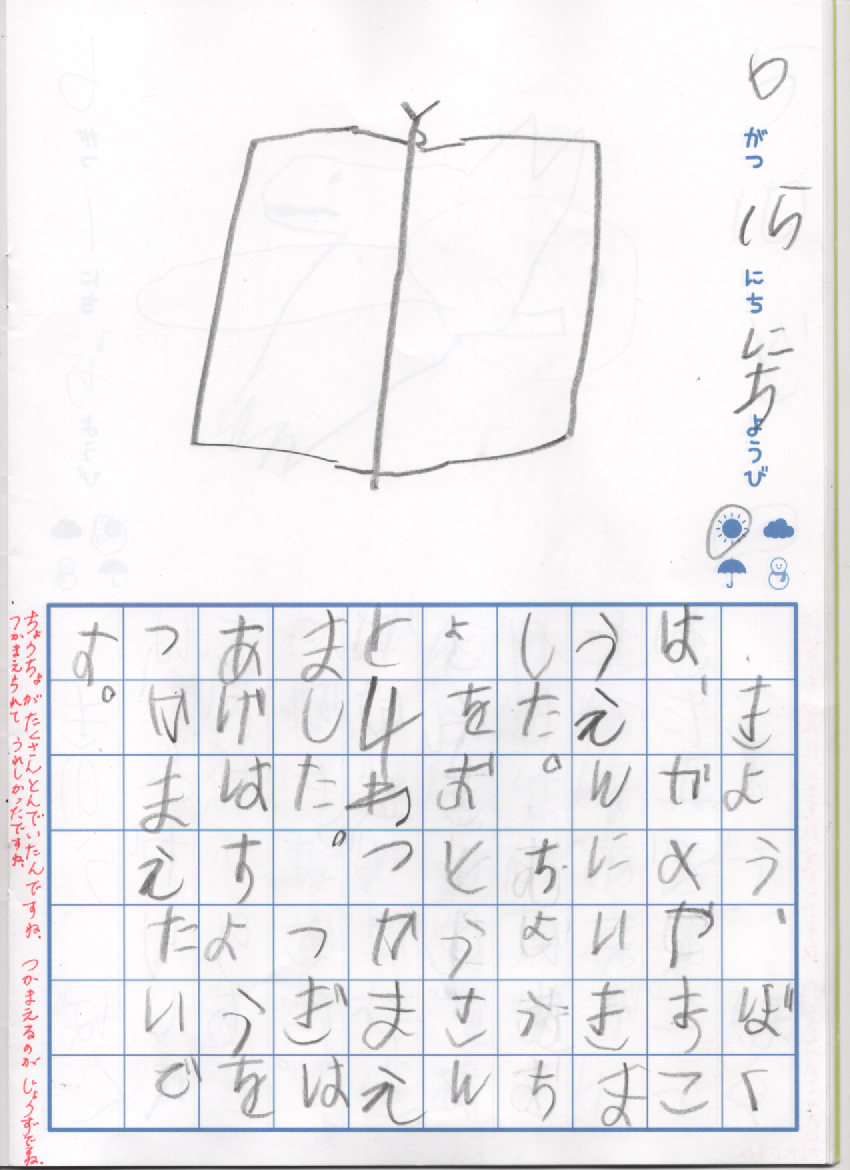 6がつ15にちにちようび
きよう、ぼく
は、かめやまこ
うえんにいきま
した。ちょうち
ょをおとうさん
と4わつかまえ
ました。つぎは
あげはすょうを
つかまえたいで
す。
ちょうちょがたくさんとんでいたんですね。 つかまえるのがじょうずですね。
つかまえられてうれしかったですね。